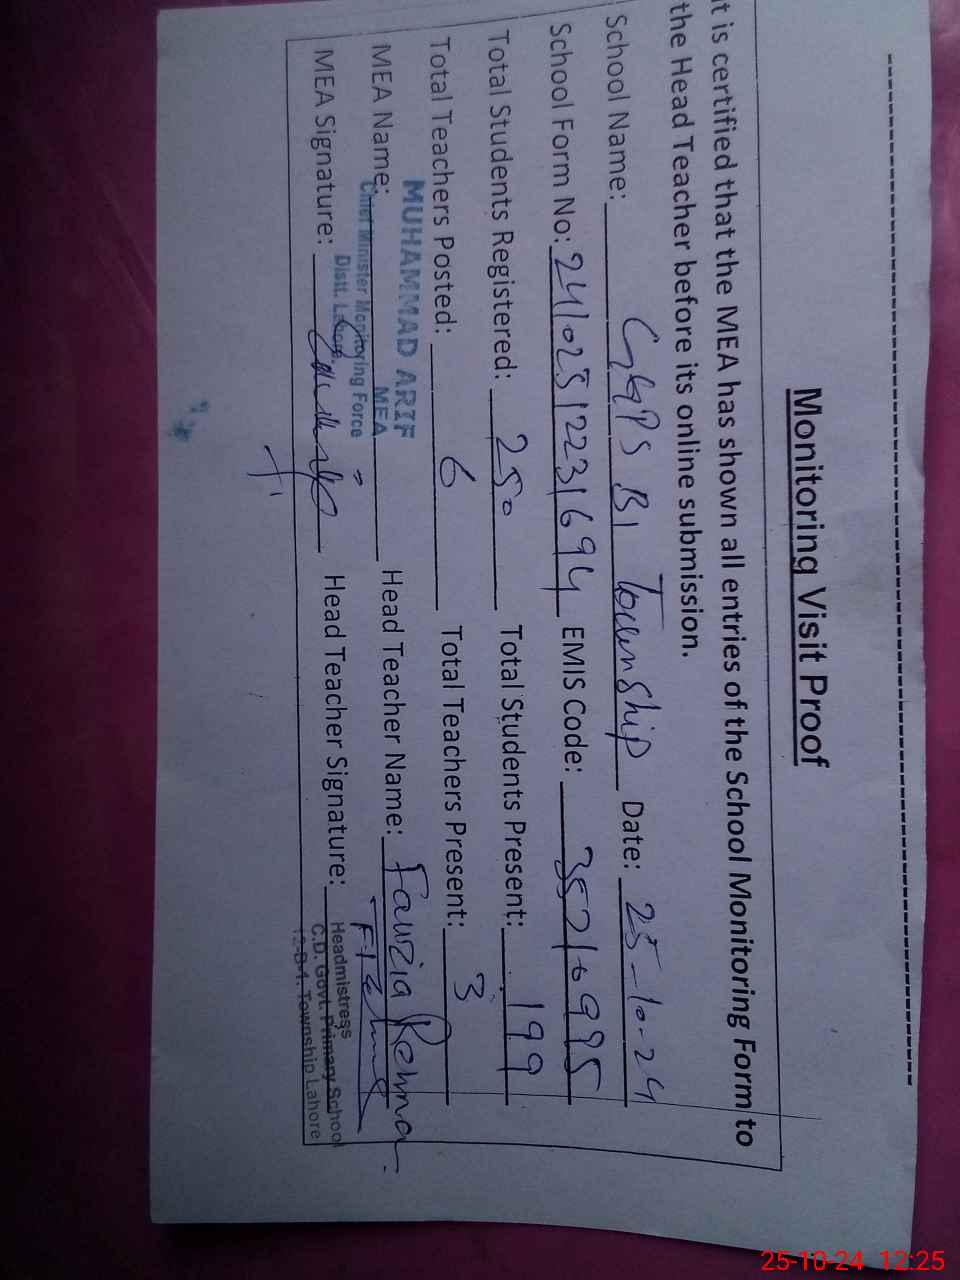 Monitoring Visit Proof
t is certified that the MEA has shown all entries of the School Monitoring Form to
the Head Teacher before its online submission.
School Name: GGPS B1 Township Date: 25-10-24
School Form No: 24102512231694 EMIS Code: 35210995
Total Students Registered: 250 Total Students Present: 199
Total Teachers Posted: 6 Total Teachers Present: 3
MUHAMMAD ARIF
MEA
MEA Name: Head Teacher Name: Fauzia Rehma
Chief Minister Monitoring Force
Distt. Lahore.
MEA Signature: Head Teacher Signature:
Headmistress
C.D. Govt. Primary School
12-B-1, Township Lahore
25-10-24 12:25